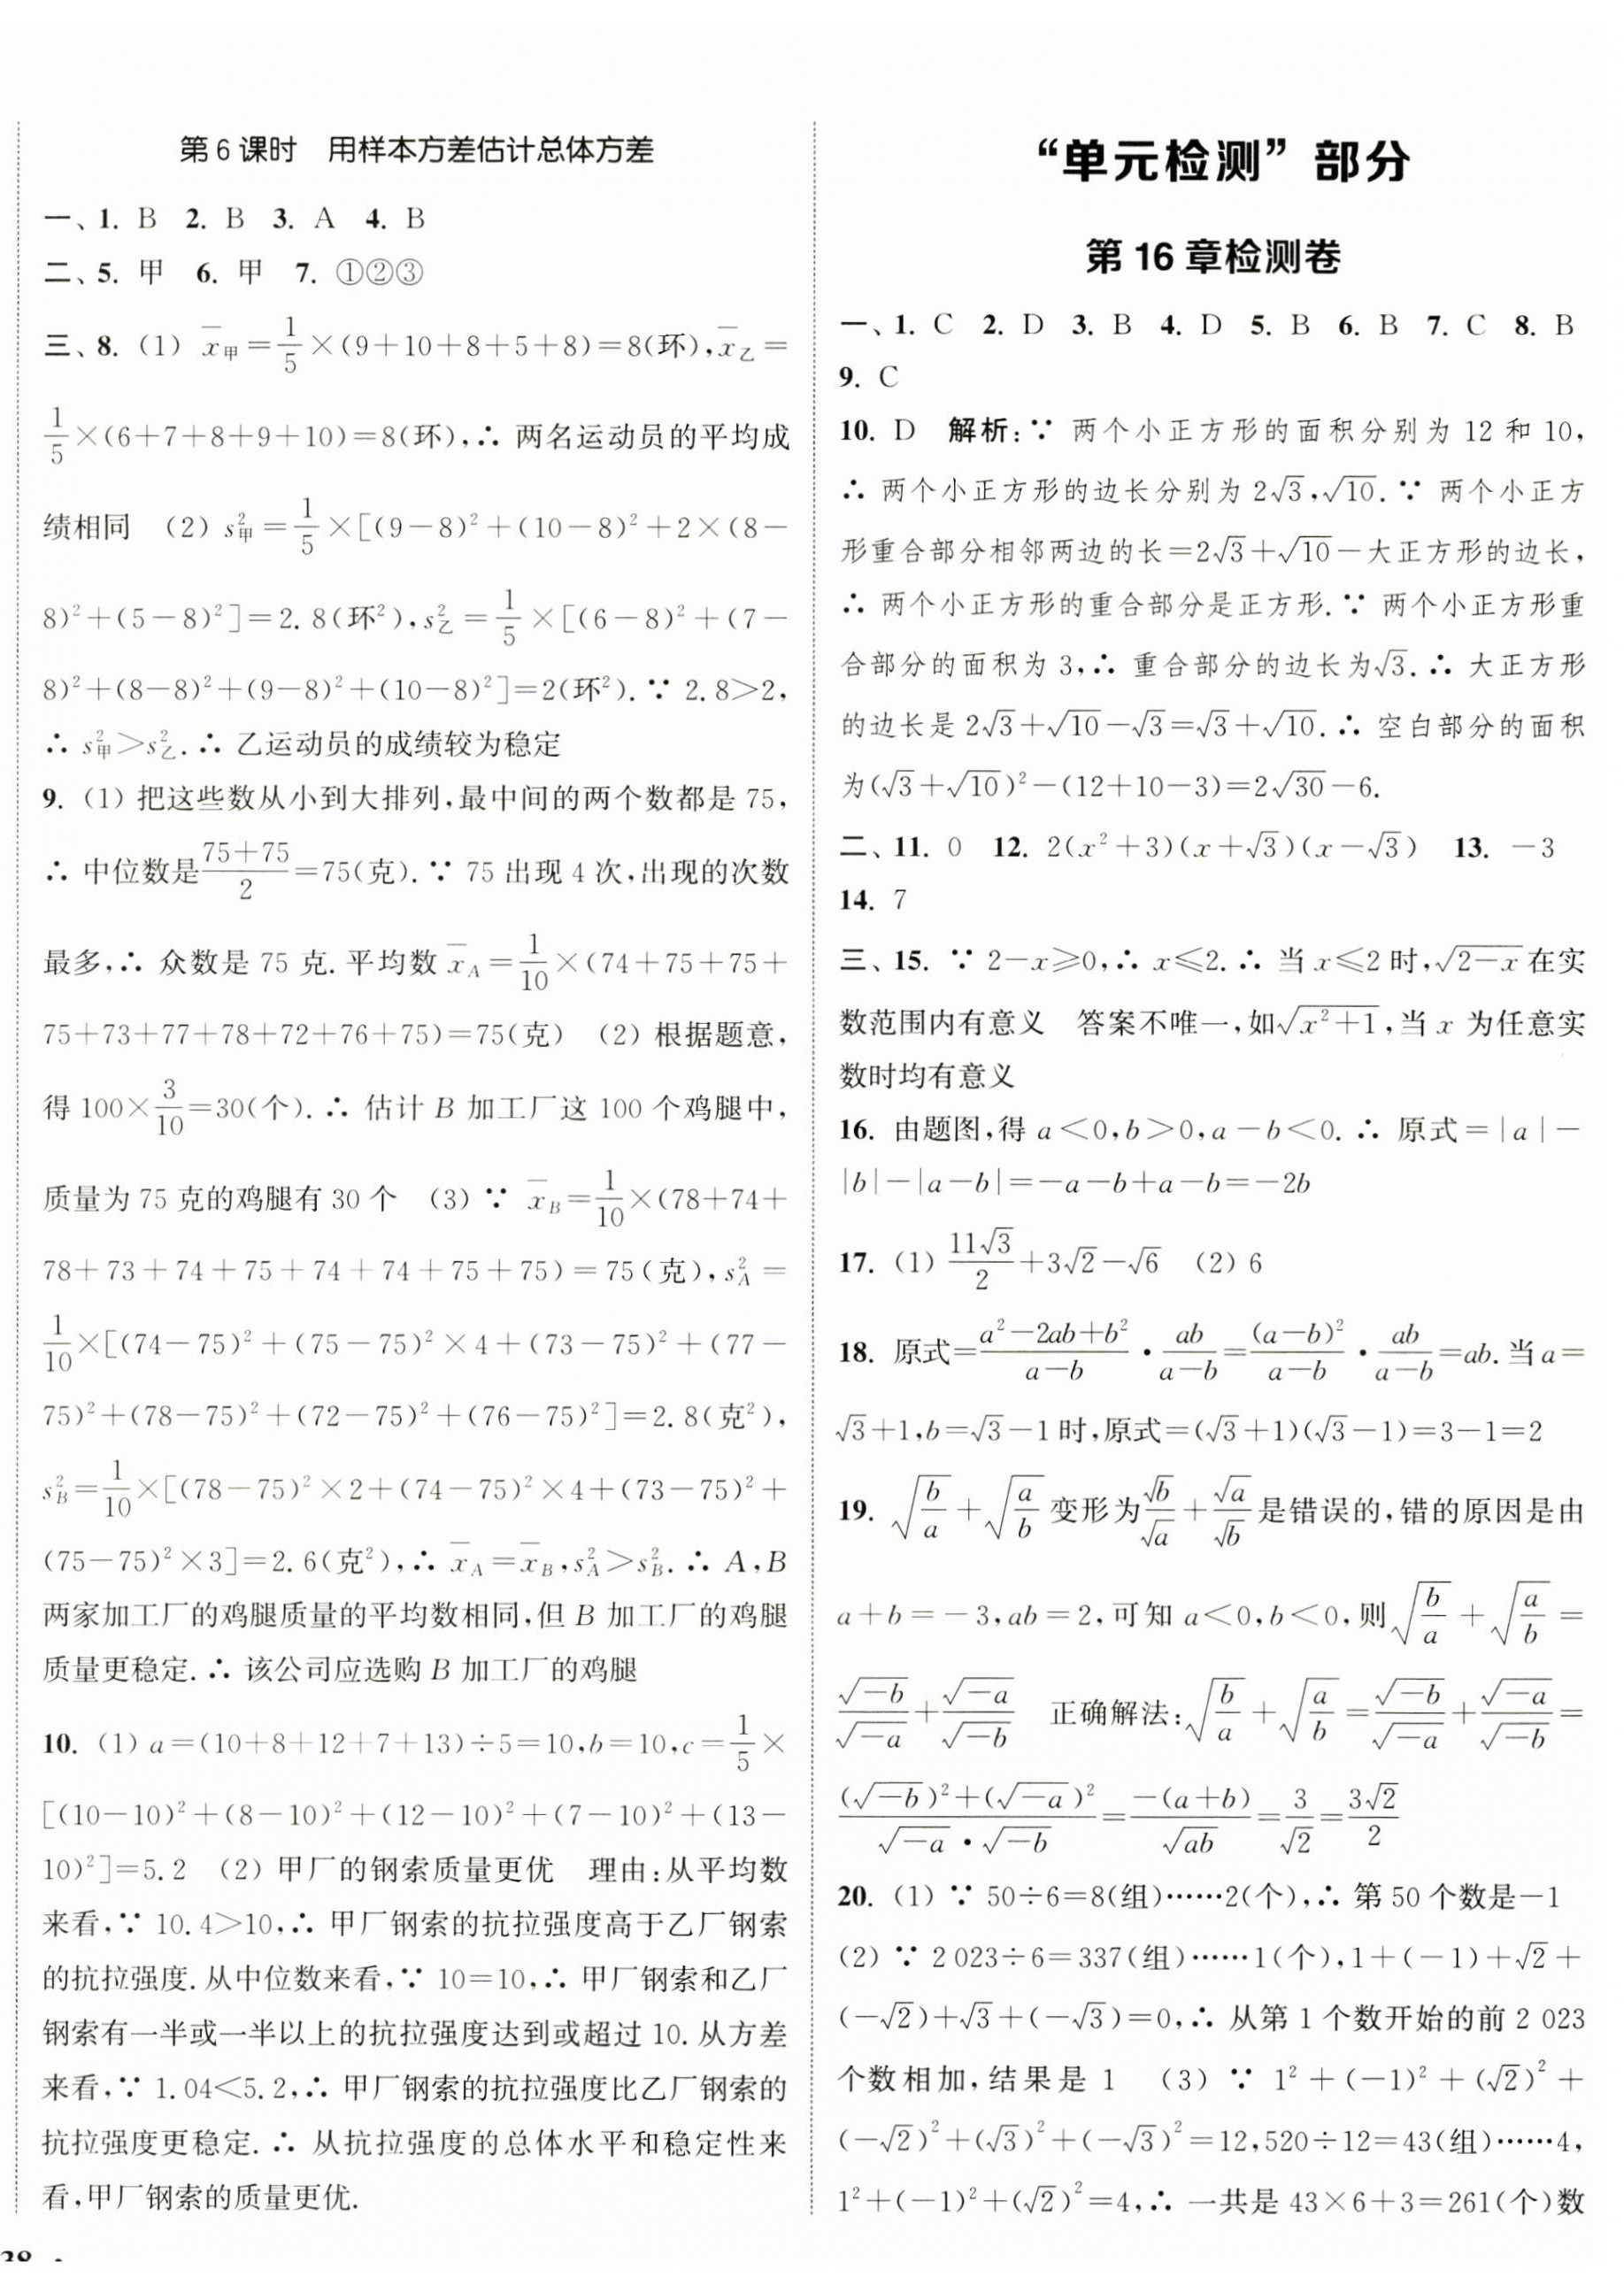 第 6 课时　用样本方差估计总体方差
一、1. B　2. B　3. A　4. B
二、5. 甲　6. 甲　7. ①②③
三、8. (1) $\overline{x}_{甲}=\frac{1}{5}×(9+10+8+5+8)=8(环),\overline{x}_{乙}=$
$\frac{1}{5}×(6+7+8+9+10)=8(环)$,∴ 两名运动员的平均成
绩相同　(2) $s_{甲}^2=\frac{1}{5}×[(9-8)^2+(10-8)^2+2×(8-$
$8)^2+(5-8)^2]=2.8(环^2),s_{乙}^2=\frac{1}{5}×[(6-8)^2+(7-$
$8)^2+(8-8)^2+(9-8)^2+(10-8)^2]=2(环^2)$.∵ 2.8>2,
∴ $s_{甲}^2>s_{乙}^2$.∴ 乙运动员的成绩较为稳定
9. (1) 把这些数从小到大排列,最中间的两个数都是 75,
∴ 中位数是$\frac{75+75}{2}=75(克)$.∵ 75 出现 4 次,出现的次数
最多,∴ 众数是 75 克. 平均数 $\overline{x}_A=\frac{1}{10}×(74+75+75+$
$75+73+77+78+72+76+75)=75(克)$　(2) 根据题意,
得 $100×\frac{3}{10}=30(个)$.∴ 估计 B 加工厂这 100 个鸡腿中,
质量为 75 克的鸡腿有 30 个　(3) ∵ $\overline{x}_B=\frac{1}{10}×(78+74+$
$78+73+74+75+74+74+75+75)=75(克),s_A^2=$
$\frac{1}{10}×[(74-75)^2+(75-75)^2×4+(73-75)^2+(77-$
$75)^2+(78-75)^2+(72-75)^2+(76-75)^2]=2.8(克^2),$
$s_B^2=\frac{1}{10}×[(78-75)^2×2+(74-75)^2×4+(73-75)^2+$
$(75-75)^2×3]=2.6(克^2)$,∴ $\overline{x}_A=\overline{x}_B,s_A^2>s_B^2$.∴ A,B
两家加工厂的鸡腿质量的平均数相同,但 B 加工厂的鸡腿
质量更稳定.∴ 该公司应选购 B 加工厂的鸡腿
10. (1) $a=(10+8+12+7+13)÷5=10,b=10,c=\frac{1}{5}×$
$[(10-10)^2+(8-10)^2+(12-10)^2+(7-10)^2+(13-$
$10)^2]=5.2$　(2) 甲厂的钢索质量更优　理由:从平均数
来看,∵ 10.4>10,∴ 甲厂钢索的抗拉强度高于乙厂钢索
的抗拉强度. 从中位数来看,∵ 10=10,∴ 甲厂钢索和乙厂
钢索有一半或一半以上的抗拉强度达到或超过 10. 从方差
来看,∵ 1.04<5.2,∴ 甲厂钢索的抗拉强度比乙厂钢索的
抗拉强度更稳定.∴ 从抗拉强度的总体水平和稳定性来
看,甲厂钢索的质量更优.
“单元检测”部分
第 16 章检测卷
一、1. C　2. D　3. B　4. D　5. B　6. B　7. C　8. B
9. C
10. D　解析:∵ 两个小正方形的面积分别为 12 和 10,
∴ 两个小正方形的边长分别为 $2\sqrt{3},\sqrt{10}$.∵ 两个小正方
形重合部分相邻两边的长$=2\sqrt{3}+\sqrt{10}-$大正方形的边长,
∴ 两个小正方形的重合部分是正方形.∵ 两个小正方形重
合部分的面积为 3,∴ 重合部分的边长为$\sqrt{3}$.∴ 大正方形
的边长是 $2\sqrt{3}+\sqrt{10}-\sqrt{3}=\sqrt{3}+\sqrt{10}$.∴ 空白部分的面积
为$(\sqrt{3}+\sqrt{10})^2-(12+10-3)=2\sqrt{30}-6$.
二、11. 0　12. $2(x^2+3)(x+\sqrt{3})(x-\sqrt{3})$　13. $-3$
14. 7
三、15. ∵ $2-x≥0$,∴ $x≤2$.∴ 当 $x≤2$ 时,$\sqrt{2-x}$ 在实
数范围内有意义　答案不唯一,如$\sqrt{x^2+1}$,当 x 为任意实
数时均有意义
16. 由题图,得 $a<0,b>0,a-b<0$.∴ 原式$=|a|-$
$|b|-|a-b|=-a-b+a-b=-2b$
17. (1) $\frac{11\sqrt{3}}{2}+3\sqrt{2}-\sqrt{6}$　(2) 6
18. 原式$=\frac{a^2-2ab+b^2}{a-b}·\frac{ab}{a-b}=\frac{(a-b)^2}{a-b}·\frac{ab}{a-b}=ab$. 当 $a=$
$\sqrt{3}+1,b=\sqrt{3}-1$ 时,原式$=(\sqrt{3}+1)(\sqrt{3}-1)=3-1=2$
19. $\sqrt{\frac{b}{a}}+\sqrt{\frac{a}{b}}$ 变形为$\frac{\sqrt{b}}{\sqrt{a}}+\frac{\sqrt{a}}{\sqrt{b}}$是错误的,错的原因是由
$a+b=-3,ab=2$,可知 $a<0,b<0$,则$\sqrt{\frac{b}{a}}+\sqrt{\frac{a}{b}}=$
$\frac{\sqrt{-b}}{\sqrt{-a}}+\frac{\sqrt{-a}}{\sqrt{-b}}$　正确解法:$\sqrt{\frac{b}{a}}+\sqrt{\frac{a}{b}}=\frac{\sqrt{-b}}{\sqrt{-a}}+\frac{\sqrt{-a}}{\sqrt{-b}}=$
$\frac{(\sqrt{-b})^2+(\sqrt{-a})^2}{\sqrt{-a}·\sqrt{-b}}=\frac{-(a+b)}{\sqrt{ab}}=\frac{3}{\sqrt{2}}=\frac{3\sqrt{2}}{2}$
20. (1) ∵ 50÷6=8(组)……2(个),∴ 第 50 个数是−1
(2) ∵ 2 023÷6=337(组)……1(个),$1+(-1)+\sqrt{2}+$
$(-\sqrt{2})+\sqrt{3}+(-\sqrt{3})=0$,∴ 从第 1 个数开始的前 2 023
个数相加,结果是 1　(3) ∵ $1^2+(-1)^2+(\sqrt{2})^2+$
$(-\sqrt{2})^2+(\sqrt{3})^2+(-\sqrt{3})^2=12$,520÷12=43(组)……4,
$1^2+(-1)^2+(\sqrt{2})^2=4$,∴ 一共是 43×6+3=261(个)数